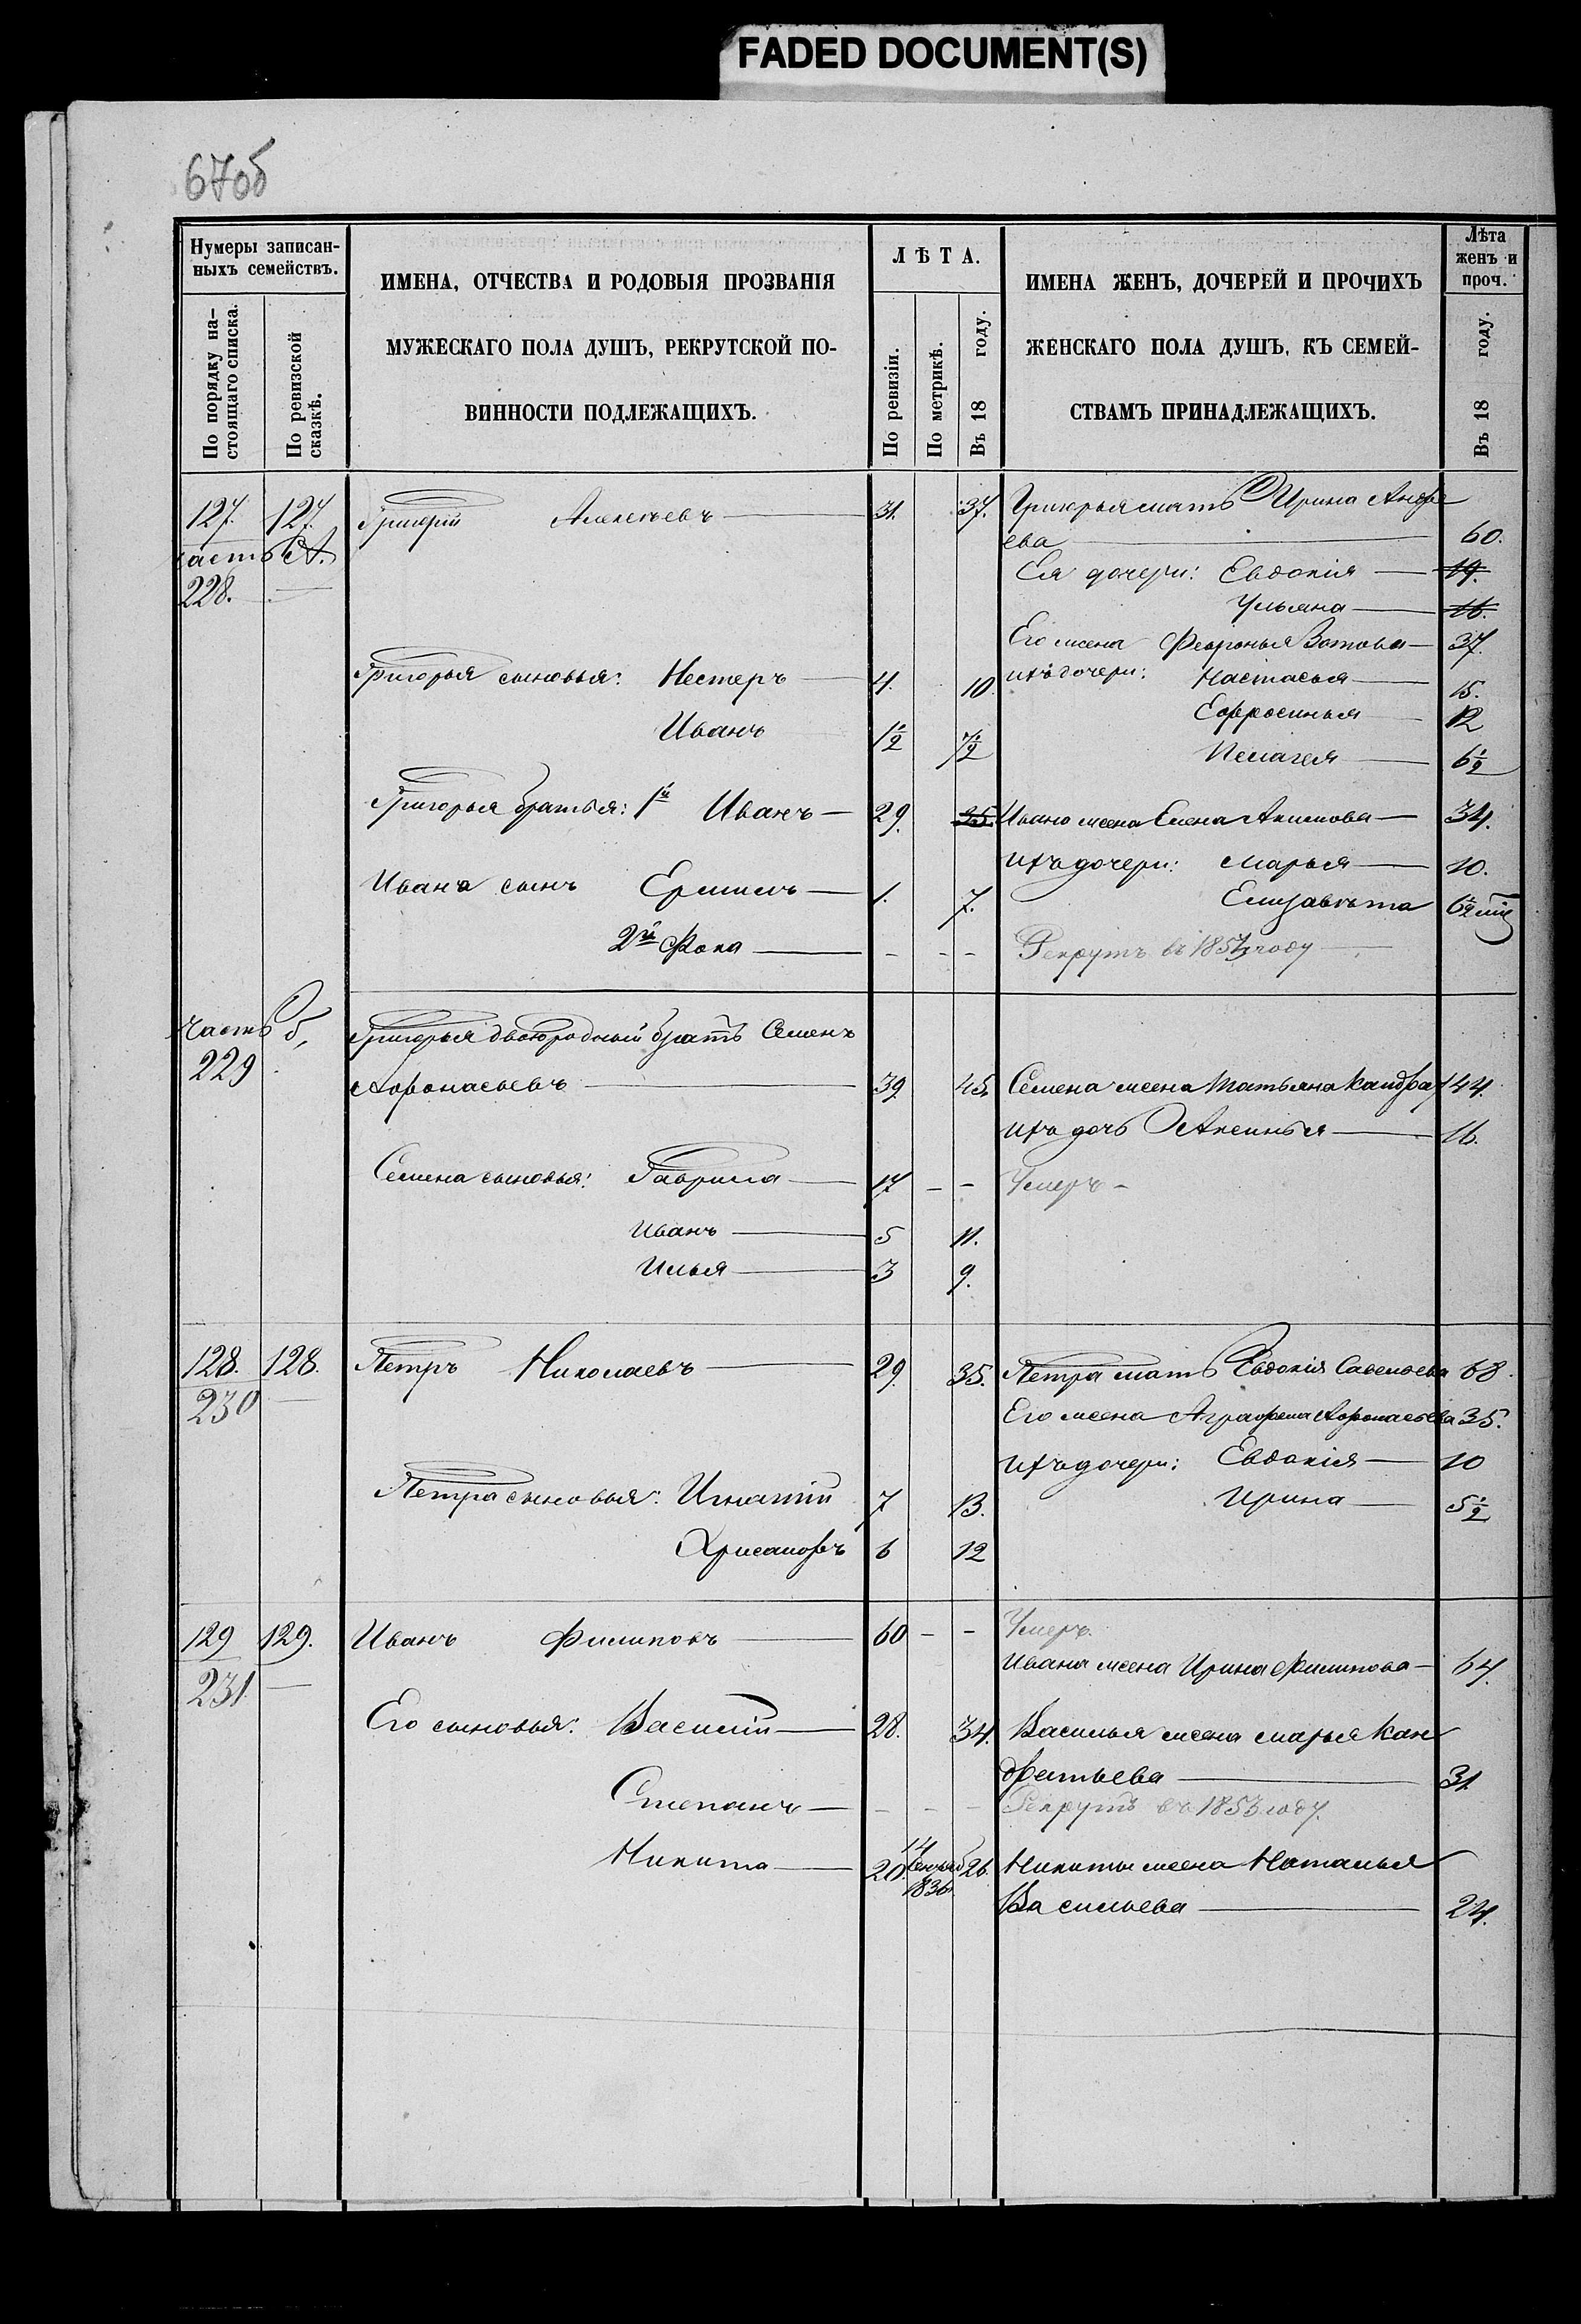 FADED DOCUMENT(S)
67об
Нумеры записан-
ныхъ семействъ.
По порядку на-
стоящаго списка.
По ревизской
сказкѣ.
ИМЕНА, ОТЧЕСТВА И РОДОВЫЯ ПРОЗВАНІЯ
МУЖЕСКАГО ПОЛА ДУШЪ, РЕКРУТСКОЙ ПО-
ВИННОСТИ ПОДЛЕЖАЩИХЪ.
ЛѢТА.
По ревизіи.
По метрикѣ.
Въ 18 году.
ИМЕНА ЖЕНЪ, ДОЧЕРЕЙ И ПРОЧИХЪ
ЖЕНСКАГО ПОЛА ДУШЪ, КЪ СЕМЕЙ-
СТВАМЪ ПРИНАДЛЕЖАЩИХЪ.
Лѣта
женъ и
проч.
Въ 18 году.
127. 127. Григорій Алексѣевъ 31. 37. Григорья мать Ирина Андре
часть А. ева 60.
228. Ея дочери: Евдокія 19.
Ульяна 16.
Его жена Февронья Зотова 37.
Григорья сыновья: Нестеръ 4. 10 ихъ дочери: Настасья 15.
Ефросинья 12
Иванъ 1½ 7½
Пелагея 6½
Григорья братья: 1й Иванъ 29. 35. Ивана жена Елена Акимова 34.
ихъ дочери: Марья 10.
Ивана сынъ Ермилъ 1. 7. Елизавѣта 6½
2й Фока - - - Рекрутъ въ 1854 году
часть б, Григорья двоюродный братъ Семенъ
229 Афонасьевъ 39 45. Семена жена Татьяна Кандра 44.
ихъ дочь Аксинья 16.
Семена сыновья: Гаврила 17 - - Умеръ -
Иванъ 5 11.
Илья 3 9.
128. 128. Петръ Николаевъ 29. 35. Петра мать Евдокія Савельева 68.
230 Его жена Аграфена Афонасьева 35.
ихъ дочери: Евдокія 10
Петра сыновья: Игнатій 7 13. Ирина 5½
Хрисанфъ 6 12
129 129. Иванъ Филиповъ 60 - - Умеръ.
231. Ивана жена Ирина Филипова 64.
Его сыновья: Василій 28. 34. Василья жена Марья Кан
дратьева 31
Степанъ - - - Рекрутъ въ 1853 году.
Никита 20. 14 1836. 26. Никиты жена Наталья
Васильева 24.